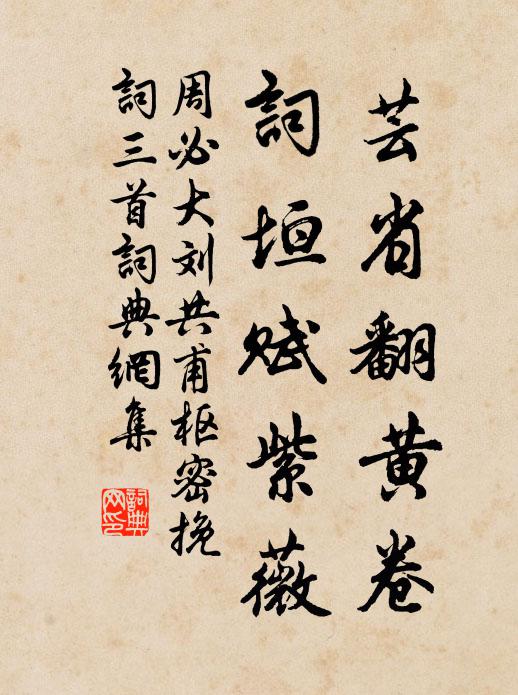 芸省翻黄卷
詞垣赋紫薇
周必大刘共甫枢密挽
詞三首詞典網集
詞典网印